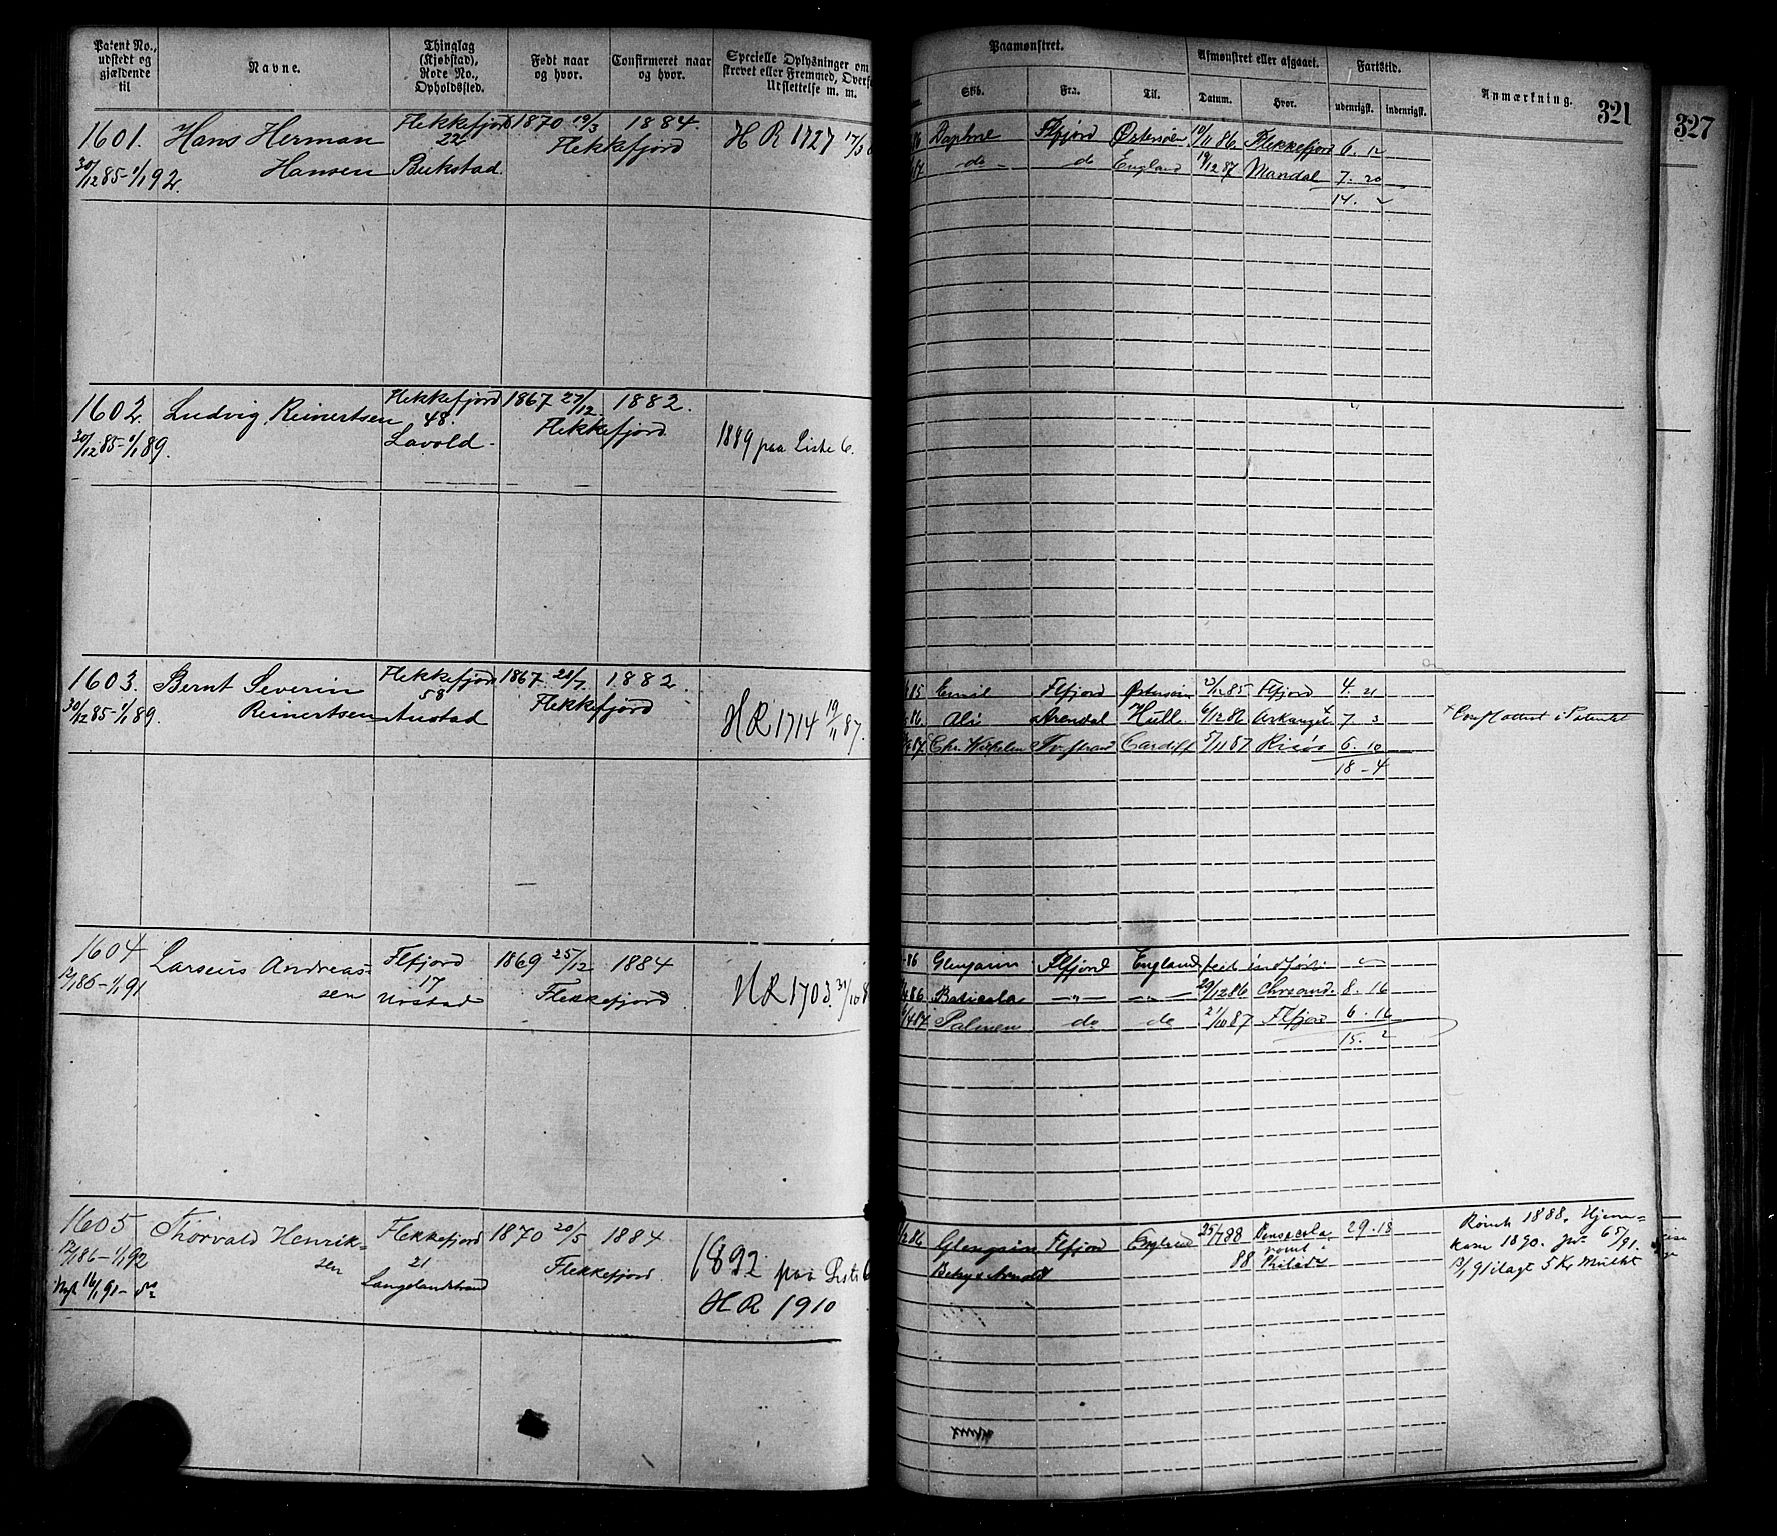 Patent No., udstedt og gjældende til
Navne.
Thinglag (Kjøbstad), Rode No., Opholdssted.
Født naar og hvor.
Confirmeret naar og hvor.
Specielle Oplysninger om
strevet eller Fremmed, Overf
Udslettelse m. m.
1601. Hans Herman Flekkefjord 1870 19/3 1884. HR 1727 17/3
22
Flekkefjord
30/12 85-1/1 92. Hansen Bukstad.
1602. Ludvig Reinertsen Flekkefjord 1867 27/12 1882.
48. Flekkefjord
30/12 85-1/1 89. Lavold. 1889 paa Liste 6.
1603. Bernt Severin Flekkefjord 1867 28/7 1882.
58 Flekkefjord
30/12 85-1/1 89. Reinertsen Anstad HR 1714 19/11 87.
1604 Larseus Andreas- Flfjord 1869 25/12 1884
17
12/1 86-1/1 91 sen Urstad Flekkefjord HR 1703. 31/10 8
1605 Thorvald Henrik- Flekkefjord 1870 20/5 1884
12/1 86-1/1 92 sen 21 Flekkefjord. 1892 paa Liste 6
Nyt 16/1 91- Langelandstrand HR 1910
Paamønstret.
Afmønstret eller afgaaet.
Fartstid.
Anmærkning.
321
327
Skib.
Fra.
Til.
Datum.
Hvor.
udenrigst.
indenrigst.
86 Daphne Flfjord Østersøen 10/11 86 Flekkefjord 6. 12
87 -do- do England 19/12 87 Mandal 7. 20
14. 2
85 Emil Flfjord Østersøen 23/12 85 Flfjord 4. 21
86. Ali Arendal Hull 6/12 86 Arkangel 7. 3
87 Chr. Wilhelm Tvestrand Cardiff 5/11 87 Risør 6. 10
18-4
86 Glengarin Flfjord England
86 Baticola -"- -"- 29/12 86 Chrsand. 8. 16
87 Palmen do do 21/10 87 Flfjord 6. 16
15. 2
86 Glengarin Flfjord England 25/7 88 Pensacola 29. 13 Rømt 1888. Hjem-
rømt kom 1890. 65/91.
Betzy & Arnold 88 13/1 91 ilagt 5 Kr Mulkt